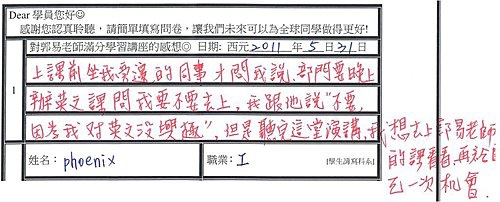 Dear 學員您好☺
感謝您認真聆聽，請簡單填寫問卷，讓我們未來可以為全球同學做得更好!
對郭易老師滿分學習講座的感想☺ 日期: 西元2011 年 5 月31 日
上課前坐我旁邊的同事才問我説,部門要晚上
辦英文課問我要不要去上,我跟他説"不要,
1
因為我对英文没興趣",但是聽完這堂演講,我想去上郭易老師
的課看看,再給自
己一次機會.
姓名: phoenix
職業: I
[學生請寫科系]